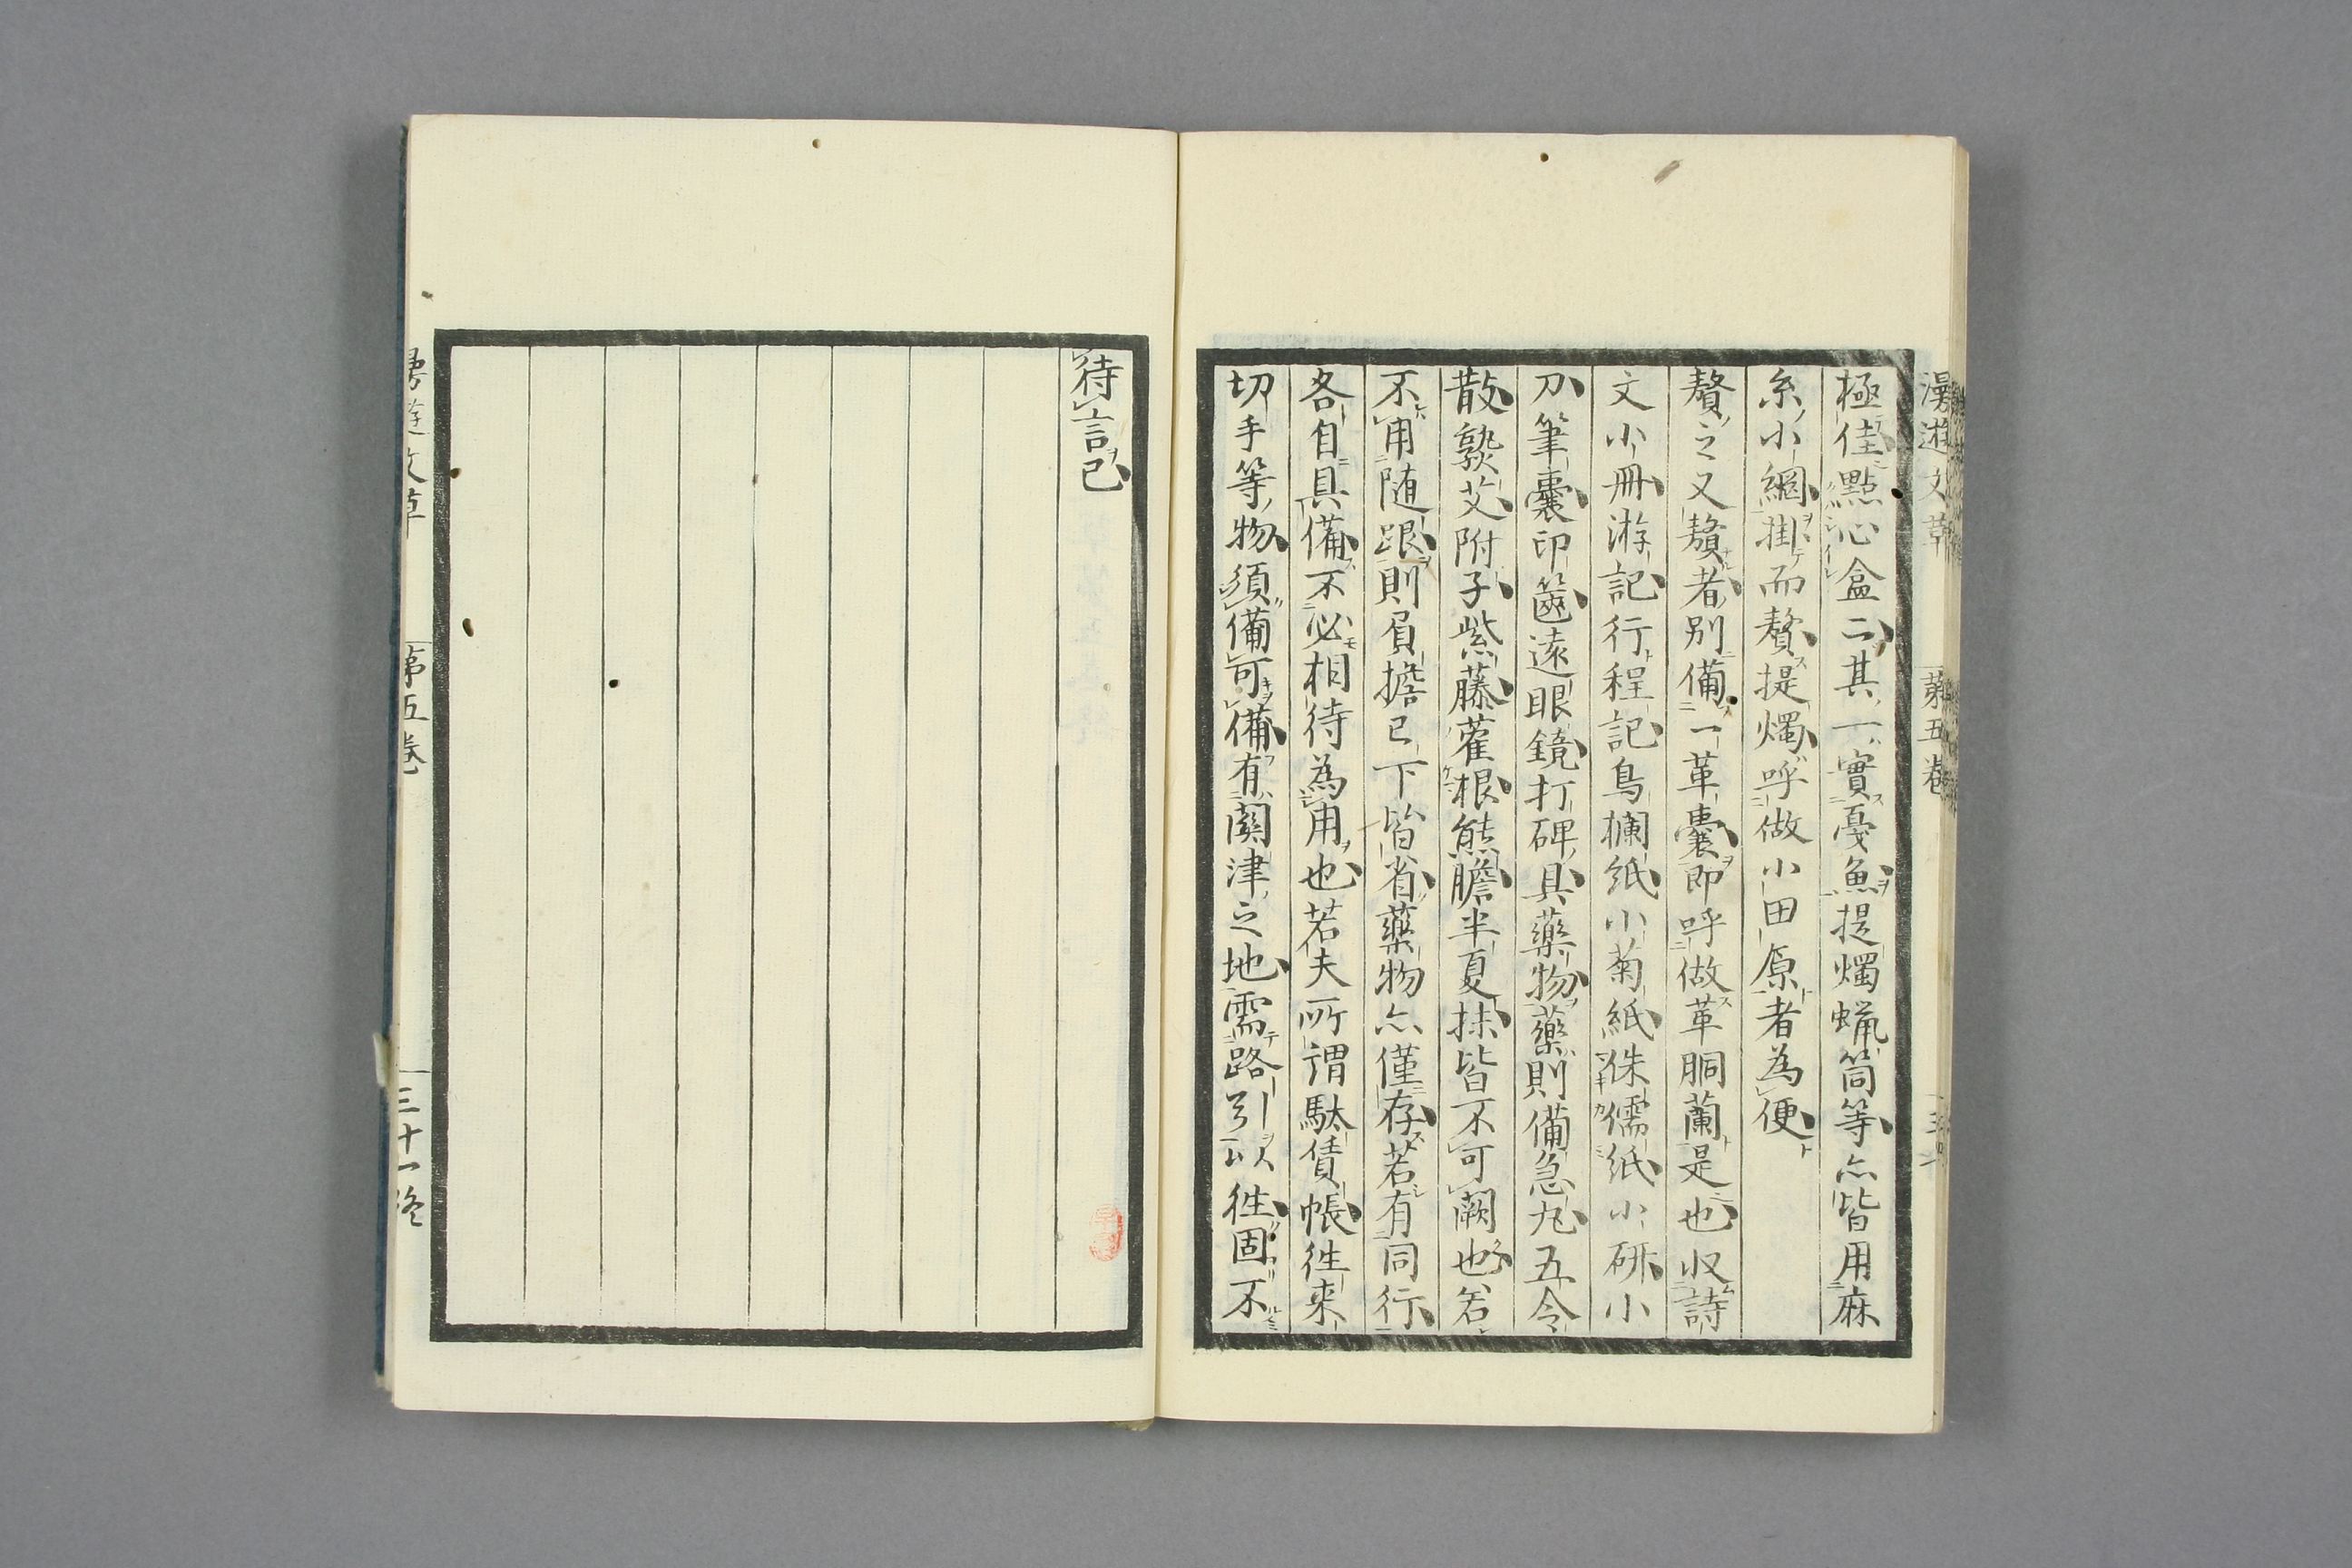 漫遊文草 第五卷
極佳點心盒二其一實憂魚提燭蝋筒等亦皆用麻
糸小網掛而贅提燭呼做小田原者為便
贅之又贅者別備一革嚢即呼做革胴蘭是也収詩
文小冊游記行程記鳥欄紙小菊紙侏儒紙小硏小
刀筆嚢印篋遠眼鏡打碑具藥物藥則備急丸五令
散熟艾附子紫藤藿根熊膽半夏抹皆不可闕也若
不用随跟則負擔已下皆省藥物亦僅存若有同行
各自具備不必相待為用也若夫所謂駄賃帳徃来
切手等物須備可備有関津之地需路引以徃固不
待言已
漫遊文草 第五卷 三十一終